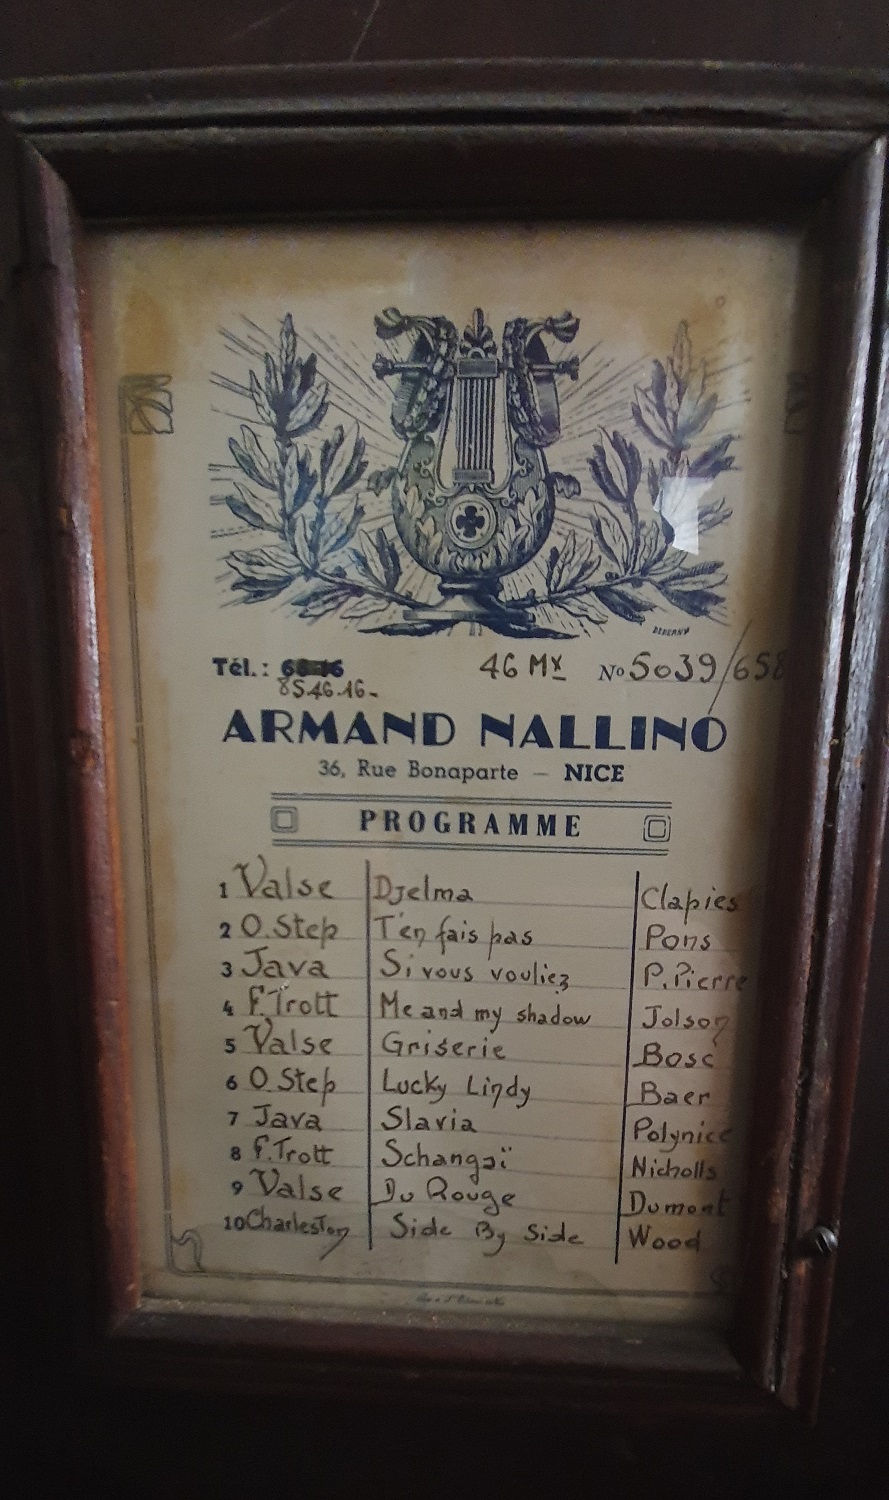 DEBERNY
Tél. :
85.46.16.-
46 Mx No 5039/658
ARMAND NALLINO
36, Rue Bonaparte — NICE
PROGRAMME
1 Valse Djelma Clapies
2 O.Step T'en fais pas Pons
3 Java Si vous vouliez P.Pierre
4 F.Trott Me and my shadow Jolson
5 Valse Griserie Bosc
6 O.Step Lucky Lindy Baer
7 Java Slavia Polynice
8 F.Trott Schangaï Nicholls
9 Valse Du Rouge Dumont
10 Charleston Side By Side Wood